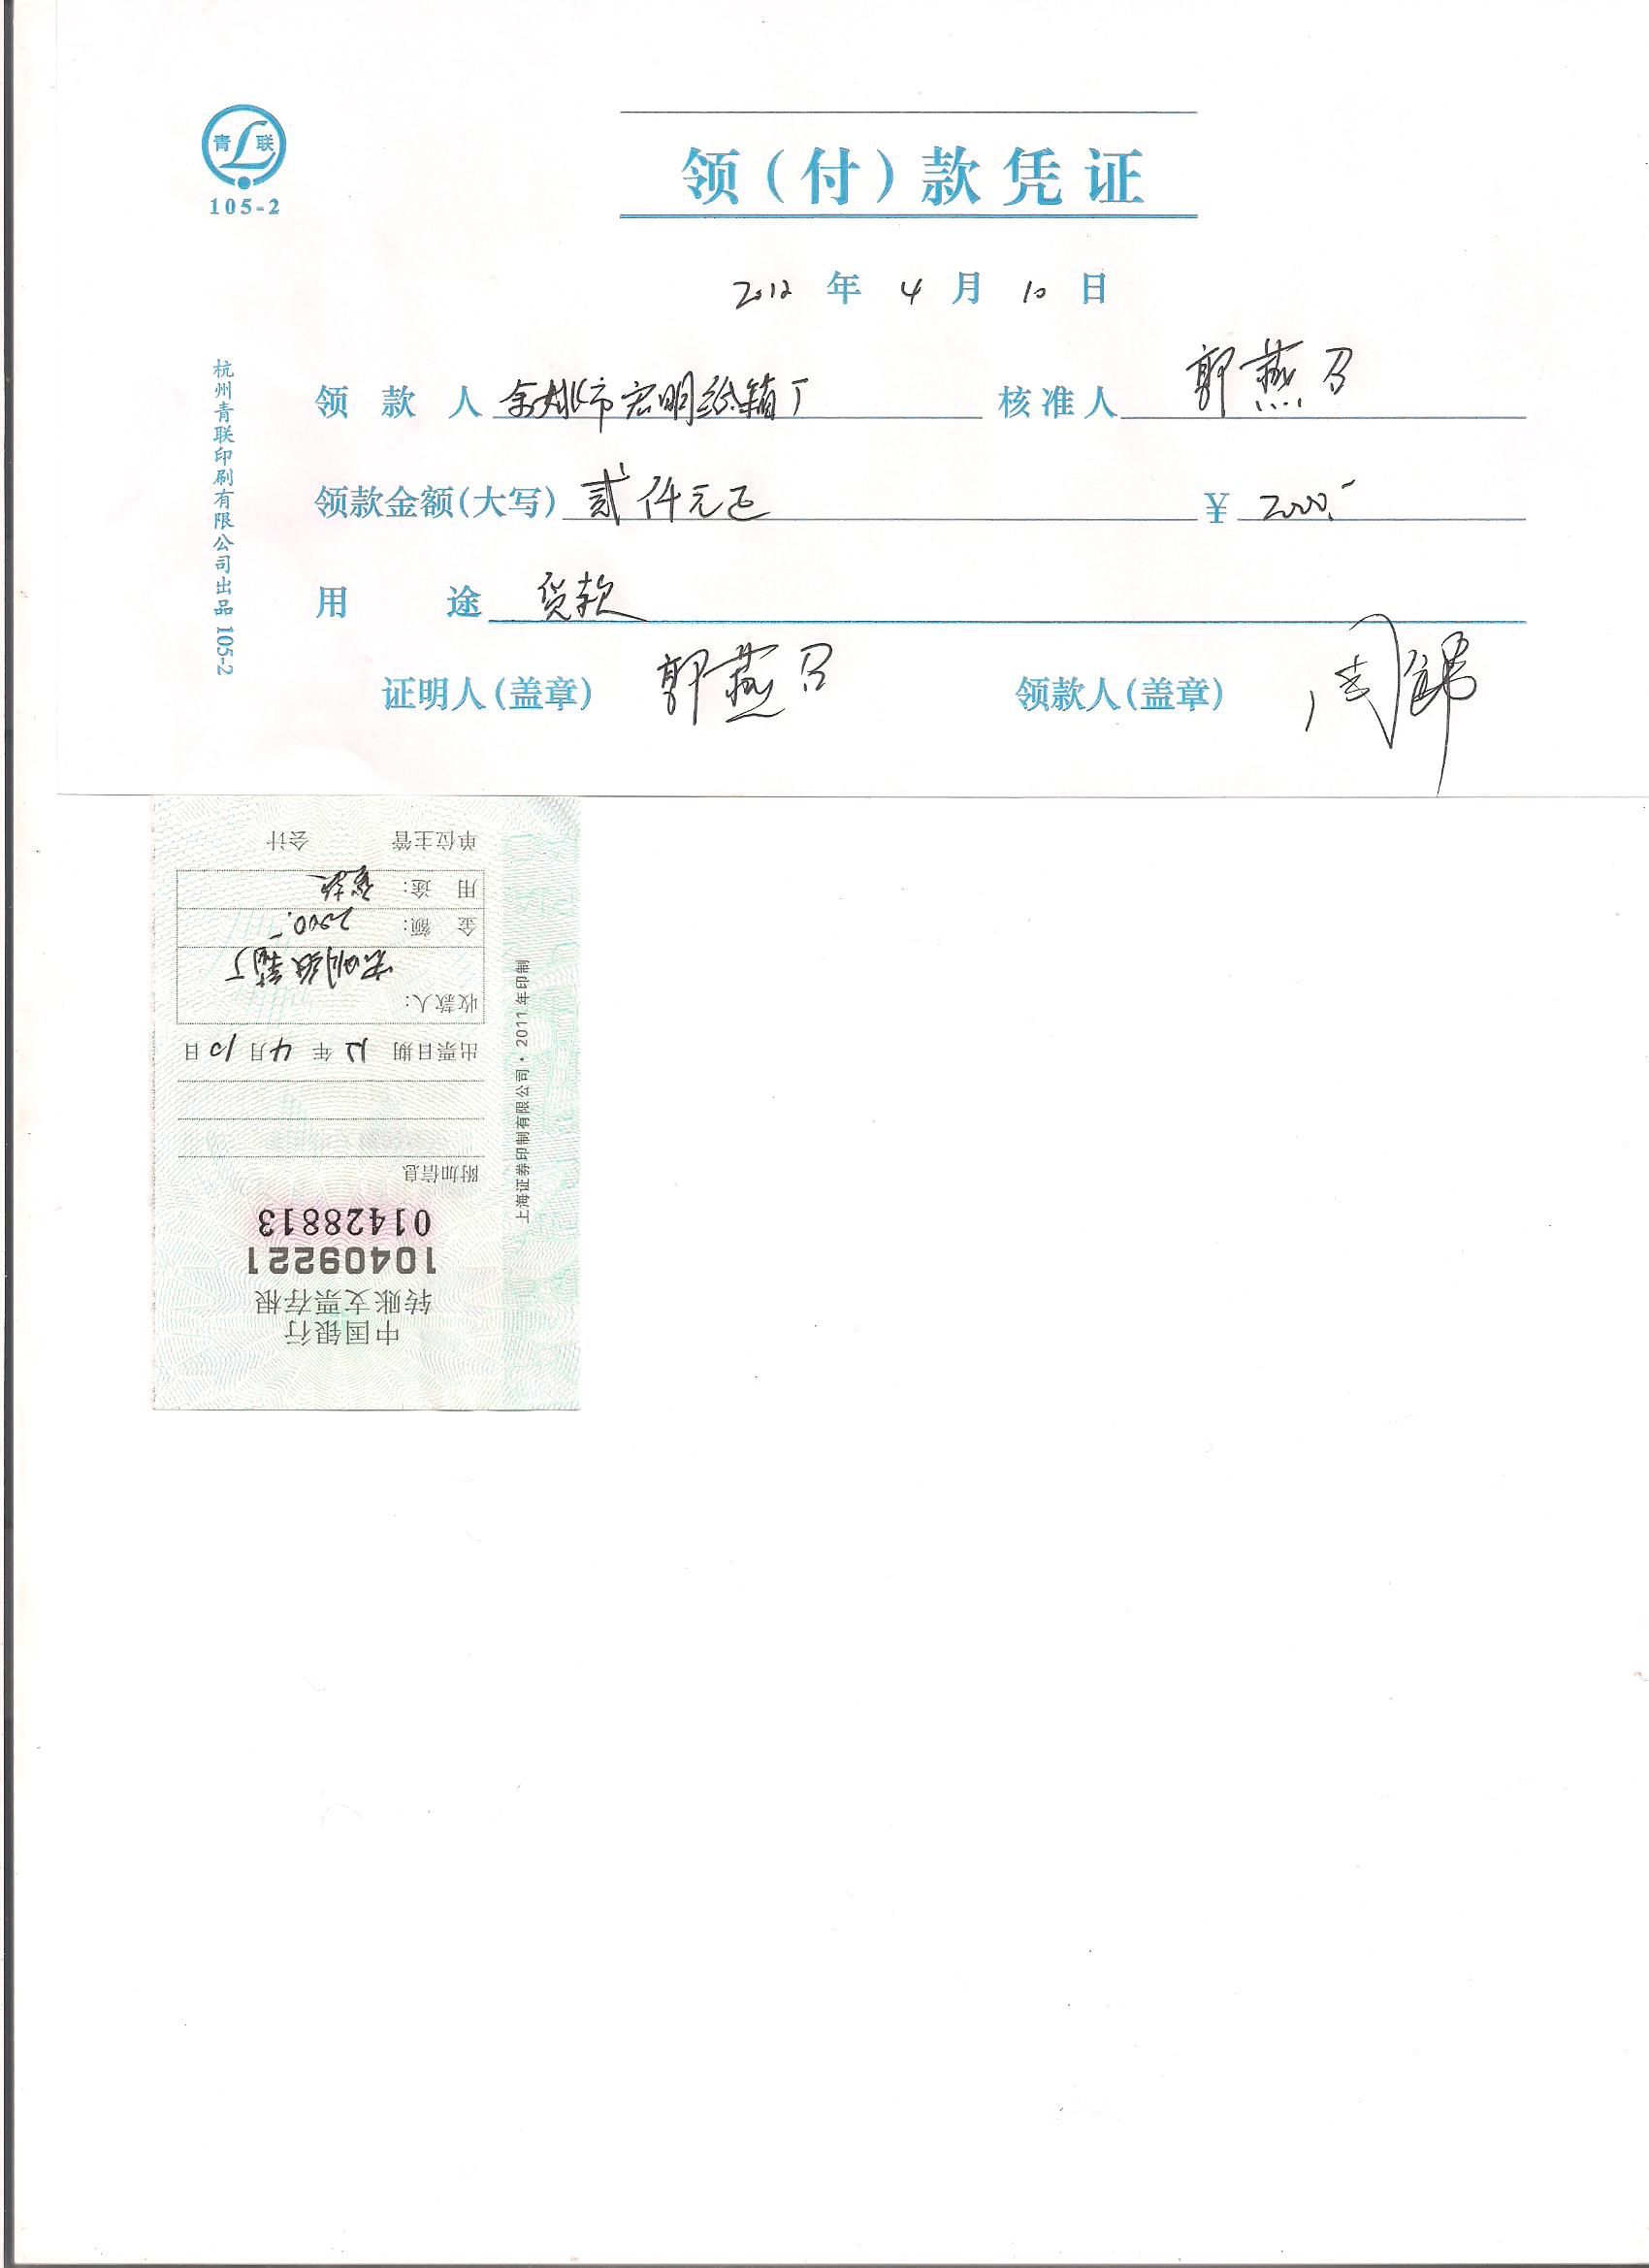 青联
105-2
领(付)款凭证
2012 年 4 月 10 日
领款人 余姚市宏明纸箱厂 核准人 郭燕召
领款金额(大写) 贰仟元正 ¥ 2000.-
用途 货款
证明人(盖章) 郭燕召 领款人(盖章) 周
杭州青联印刷有限公司出品 105-2
中国银行
转账支票存根
10409221
01428813
附加信息
出票日期 12 年 4 月 10 日
收款人:
宏明纸箱厂
金额: 2000.-
用途: 货款
单位主管 会计
上海证券印制有限公司·2011年印制